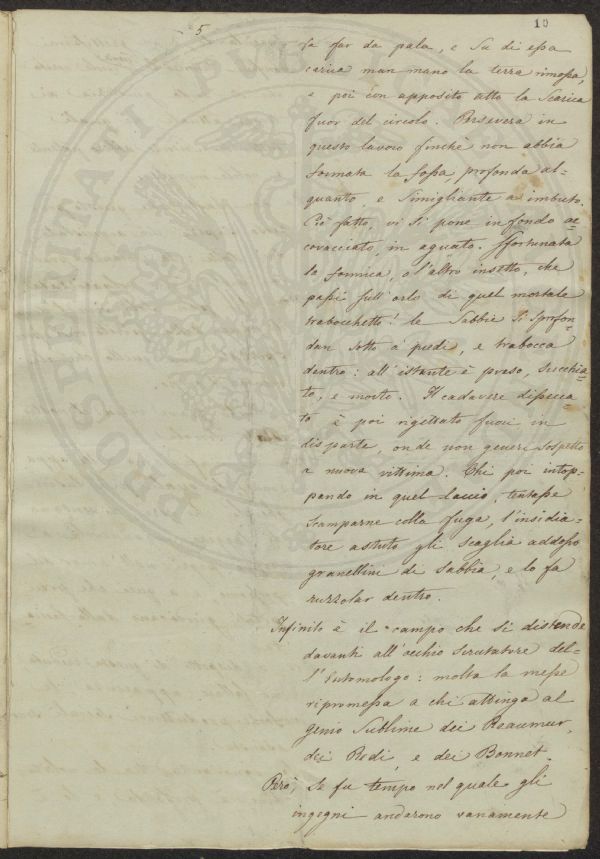 5
10
fa far da pala, e su di essa
carica man mano la terra rimossa,
e poi con apposito atto la scarica
fuor del circolo. Persevera in
questo lavoro finchè non abbia
formata la fossa, profonda al-
quanto, e simigliante a imbuto.
Ciò fatto, vi si pone in fondo ac-
covacciato, in aguato. Sfortunata
la formica, o l'altro insetto, che
passi sull'orlo di quel mortale
trabocchetto! le sabbie si sprofon-
dan sotto a' piedi, e trabocca
dentro: all'istante è preso, succhia-
to, e morto. Il cadavere dissecca-
to è poi rigettato fuori in
disparte, onde non generi sospetto
a nuova vittima. Chi poi intop-
pando in quel laccio, tentasse
scamparne colla fuga, l'insidia-
tore astuto gli scaglia addosso
granellini di sabbia, e lo fa
ruzzolar dentro.
Infinito è il campo che si distende
davanti all'occhio scrutatore del-
l'Entomologo: molta la messe
ripromessa a chi attinga al
genio sublime dei Reaumur,
dei Redi, e dei Bonnet.
Però, se fu tempo nel quale gli
ingegni andarono vanamente
PROSPERITATI PUB